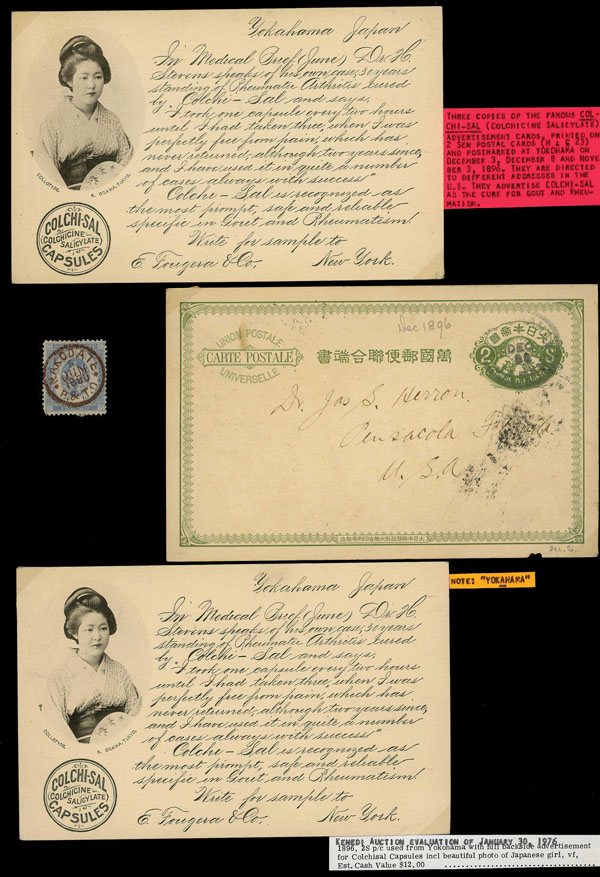 Yokahama Japan
In Medical Brief (June) Dr. H.
Stevens speaks of his own case, 30 years
standing of Rheumatic Arthritis cured
by "Colchi-Sal and says,
"I took one capsule every two hours
until I had taken three, when I was
perfectly free from pain, which has
never returned, although two years since,
and I have used it in quite a number
of cases always with success"
Colchi-Sal is recognized as
the most prompt, safe and reliable
specific in Gout and Rheumatism!
Write for sample to
E. Fougera & Co. New York.
COLLOTYPE. K. OGAWA, TOKYO.
COLCHI-SAL
(COLCHICINE
SALICYLATE)
CAPSULES
THREE COPIES OF THE FAMOUS COL-
CHI-SAL (COLCHICINE SALICYLATE)
ADVERTISEMENT CARDS, PRINTED ON
2 SEN POSTAL CARDS (H & G 23)
AND POSTMARKED AT YOKOHAMA ON
DECEMBER 3, DECEMBER 8 AND NOVE
BER 3, 1896. THEY ARE DIRECTED
TO DIFFERENT ADDRESSES IN THE
U.S. THEY ADVERTISE COLCHI-SAL
AS THE CURE FOR GOUT AND RHEU-
MATISM.
HAKODATE
JUN
P. & T.O.
Dec 1896
UNION POSTALE
CARTE POSTALE
UNIVERSELLE
書端合聯便郵國萬
大日本帝國
2 S
DEC
Dr. Jas S. Herron.
Pensacola Florida
U.S.A.
Dec. 96.
NOTE: "YOKAHAMA"
Yokahama Japan
In Medical Brief (June) Dr. H.
Stevens speaks of his own case, 30 years
standing of Rheumatic Arthritis cured
by "Colchi-Sal and says,
"I took one capsule every two hours
until I had taken three, when I was
perfectly free from pain, which has
never returned, although two years since,
and I have used it in quite a number
of cases always with success"
Colchi-Sal is recognized as
the most prompt, safe and reliable
specific in Gout and Rheumatism!
Write for sample to
E. Fougera & Co. New York.
COLLOTYPE. K. OGAWA, TOKYO.
COLCHI-SAL
(COLCHICINE
SALICYLATE)
CAPSULES
KENEDI AUCTION EVALUATION OF JANUARY 30, 1976
1896, 2S p/c used from Yokohama with full backside advertisement
for Colchisal Capsules incl beautiful photo of Japanese girl, vf,
Est. Cash Value $12.00 ..........